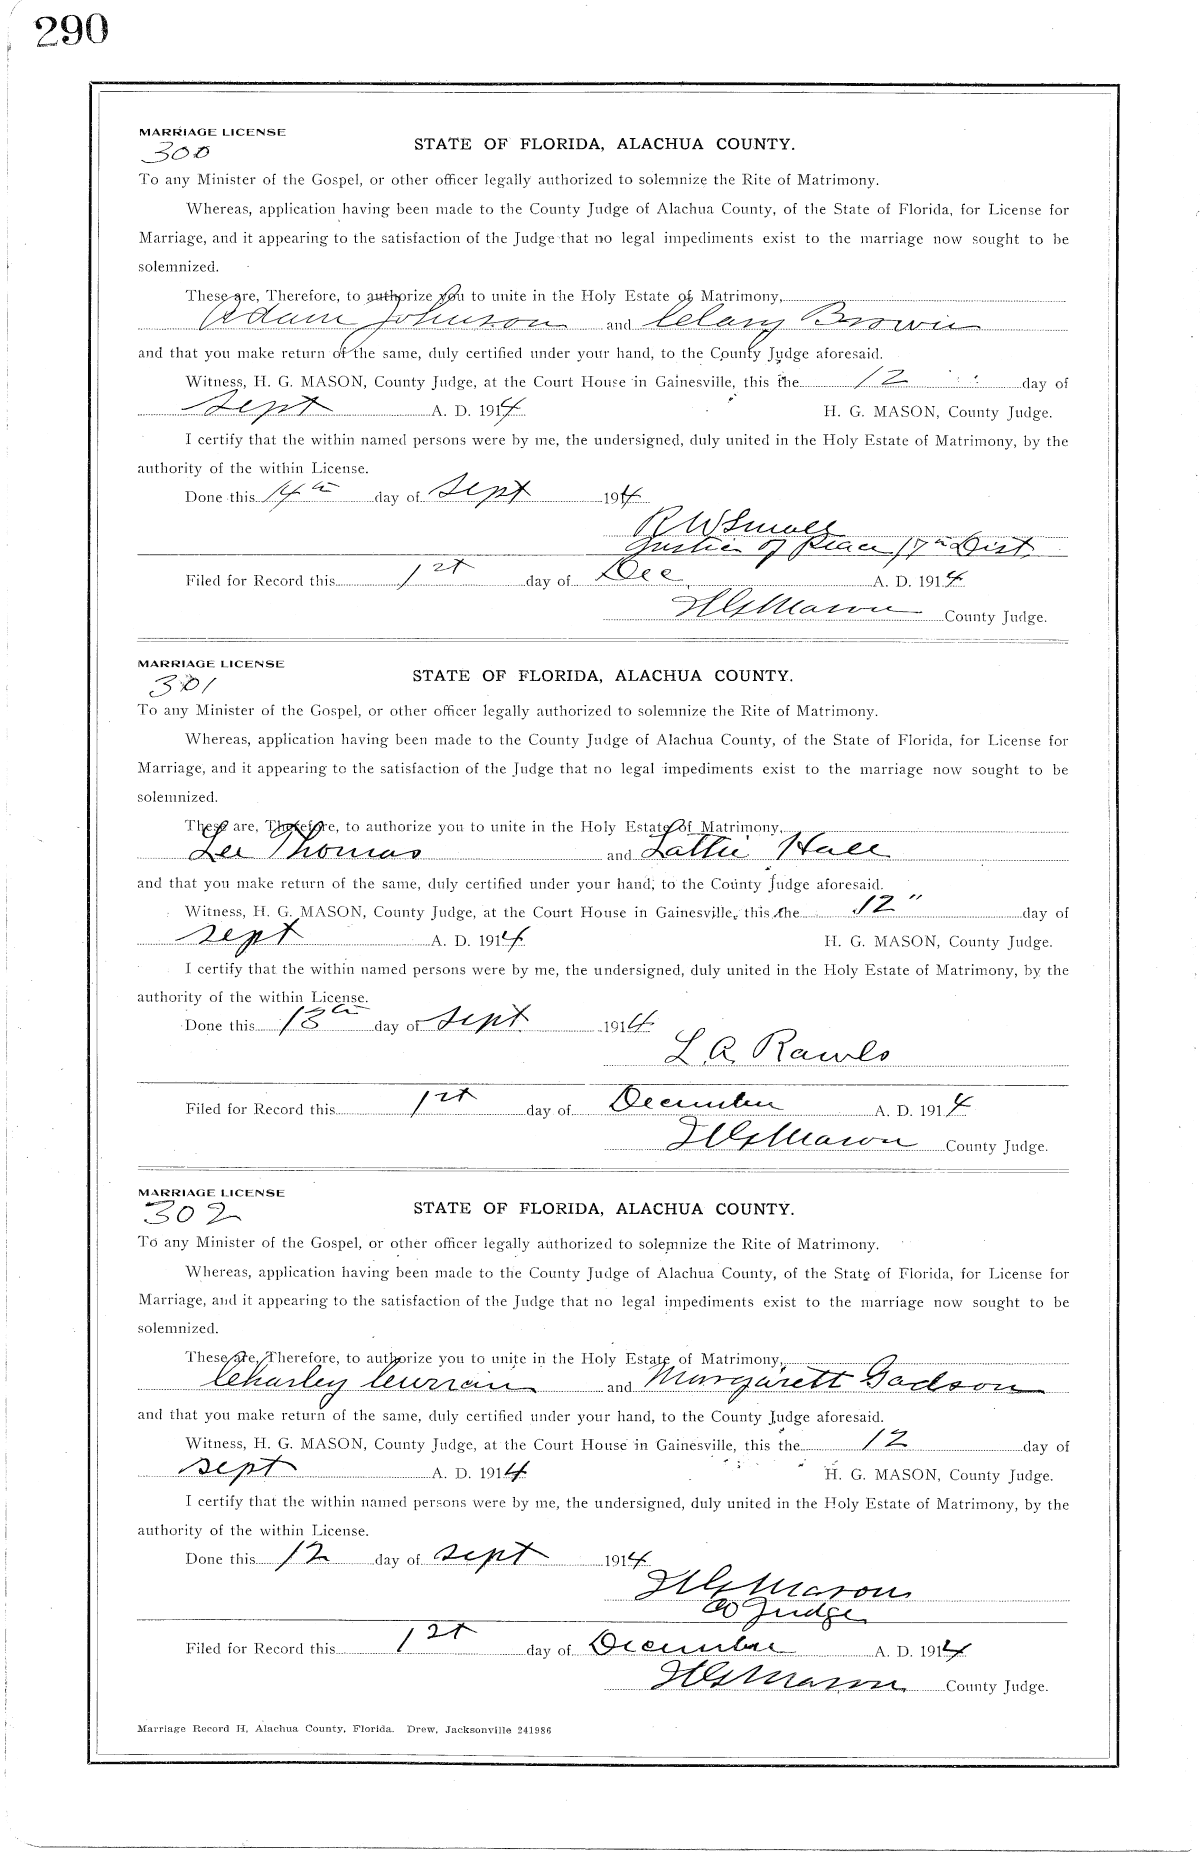 290
MARRIAGE LICENSE
300
STATE OF FLORIDA, ALACHUA COUNTY.
To any Minister of the Gospel, or other officer legally authorized to solemnize the Rite of Matrimony.
Whereas, application having been made to the County Judge of Alachua County, of the State of Florida, for License for
Marriage, and it appearing to the satisfaction of the Judge that no legal impediments exist to the marriage now sought to be
solemnized.
These are, Therefore, to authorize you to unite in the Holy Estate of Matrimony,
Adam Johnson and Clary Brown
and that you make return of the same, duly certified under your hand, to the County Judge aforesaid.
Witness, H. G. MASON, County Judge, at the Court House in Gainesville, this the 12 day of
Sept A. D. 1914 H. G. MASON, County Judge.
I certify that the within named persons were by me, the undersigned, duly united in the Holy Estate of Matrimony, by the
authority of the within License.
Done this 14th day of Sept 1914
R W Small
Justice of Peace 17th Dist.
Filed for Record this 1st day of Dec A. D. 1914
H G Mason County Judge.
MARRIAGE LICENSE
301
STATE OF FLORIDA, ALACHUA COUNTY.
To any Minister of the Gospel, or other officer legally authorized to solemnize the Rite of Matrimony.
Whereas, application having been made to the County Judge of Alachua County, of the State of Florida, for License for
Marriage, and it appearing to the satisfaction of the Judge that no legal impediments exist to the marriage now sought to be
solemnized.
These are, Therefore, to authorize you to unite in the Holy Estate of Matrimony,
Lee Thomas and Lattie Hall
and that you make return of the same, duly certified under your hand, to the County Judge aforesaid.
Witness, H. G. MASON, County Judge, at the Court House in Gainesville, this the 12" day of
Sept A. D. 1914 H. G. MASON, County Judge.
I certify that the within named persons were by me, the undersigned, duly united in the Holy Estate of Matrimony, by the
authority of the within License.
Done this 13th day of Sept 1914
L. A. Rawls
Filed for Record this 1st day of December A. D. 1914
H G Mason County Judge.
MARRIAGE LICENSE
302
STATE OF FLORIDA, ALACHUA COUNTY.
To any Minister of the Gospel, or other officer legally authorized to solemnize the Rite of Matrimony.
Whereas, application having been made to the County Judge of Alachua County, of the State of Florida, for License for
Marriage, and it appearing to the satisfaction of the Judge that no legal impediments exist to the marriage now sought to be
solemnized.
These are, Therefore, to authorize you to unite in the Holy Estate of Matrimony,
Charley Curran and Margarett Gadson
and that you make return of the same, duly certified under your hand, to the County Judge aforesaid.
Witness, H. G. MASON, County Judge, at the Court House in Gainesville, this the 12 day of
Sept A. D. 1914 H. G. MASON, County Judge.
I certify that the within named persons were by me, the undersigned, duly united in the Holy Estate of Matrimony, by the
authority of the within License.
Done this 12 day of Sept 1914
H G Mason
Co Judge
Filed for Record this 1st day of December A. D. 1914
H G Mason County Judge.
Marriage Record H, Alachua County, Florida. Drew, Jacksonville 241986